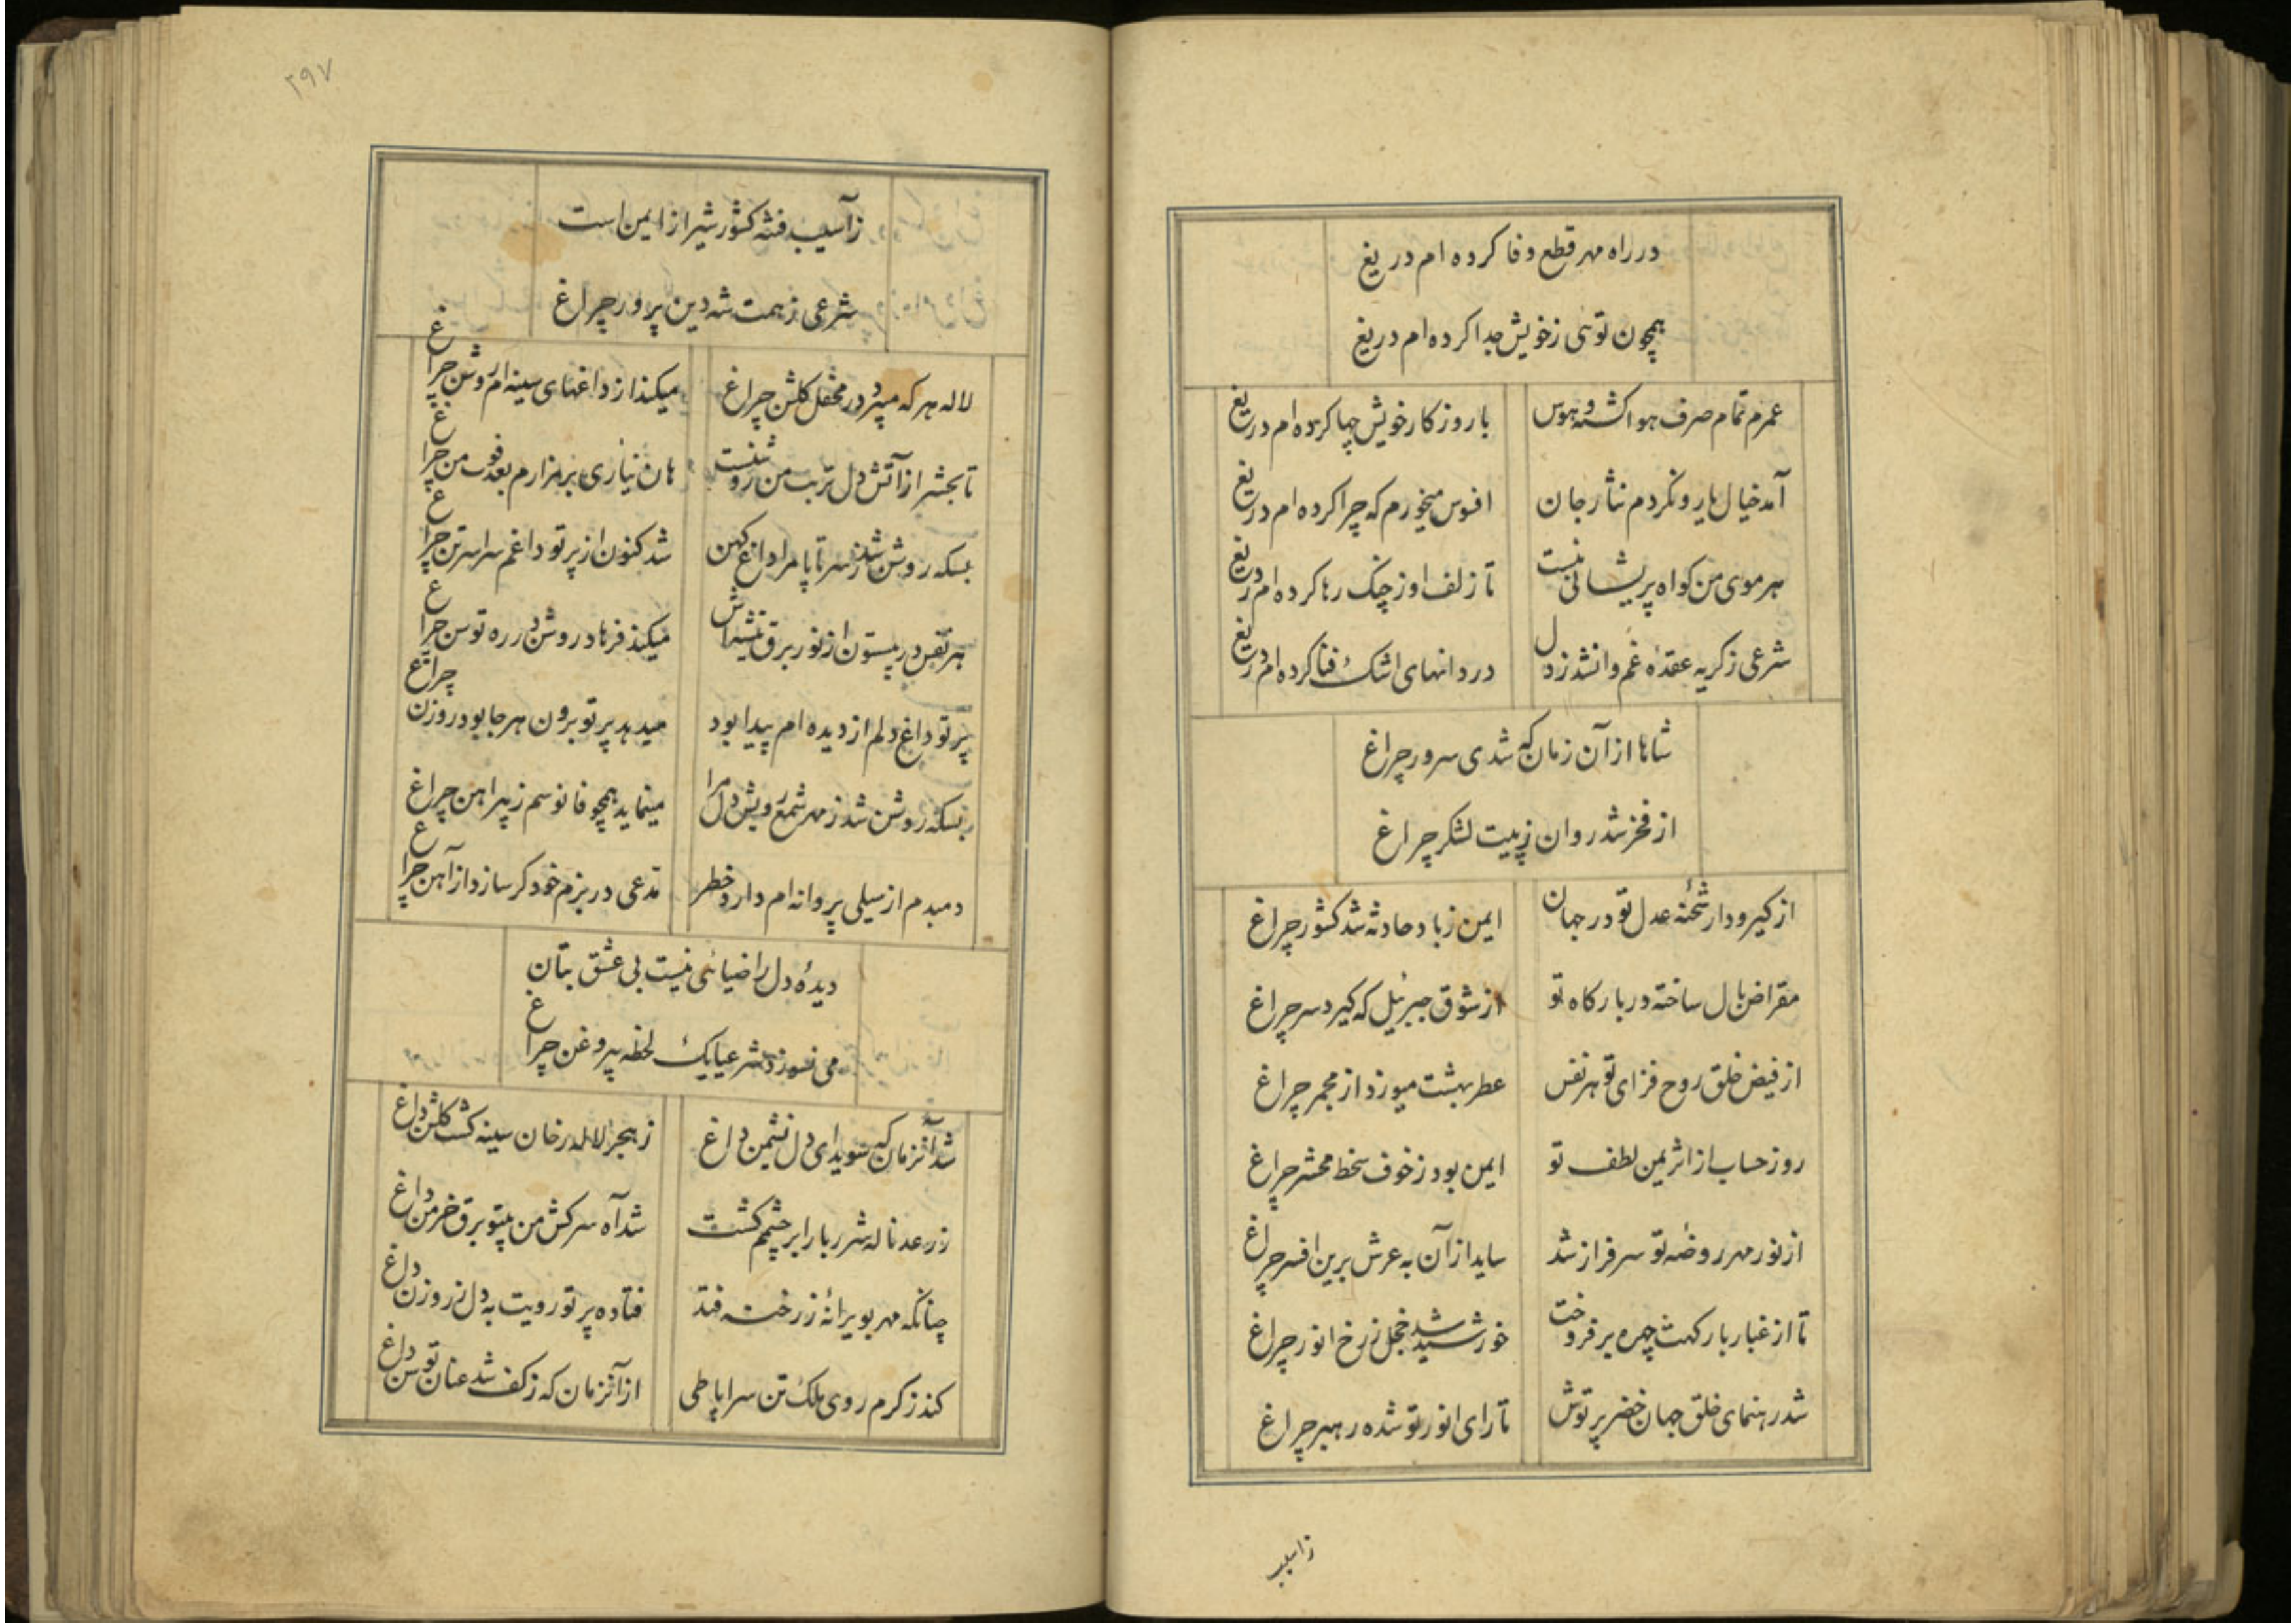 در راه مهر قطع وفا کرده ام دریغ
همچون توئی ز خویش جدا کرده ام دریغ
عمرم تمام صرف هوا کشته و هوس با روزکار خویش چها کرده ام دریغ
آمد خیال یار و نکردم نثار جان افسوس میخورم که چرا کرده ام دریغ
هر موی من کواه پریشانی منست تا زلف او ز چنک رها کرده ام دریغ
شرعی ز کریه عقدهٔ غم وا نشد ز دل دردانهای اشک فنا کرده ام دریغ
شاها از آن زمان که شدی سرور چراغ
از فخر شد روان ز پیت لشکر چراغ
از کیرودار شحنهٔ عدل تو در جهان ایمن ز باد حادثه شد کشور چراغ
مقراض بال ساخته در بارکاه تو از شوق جبرئیل که کیرد سر چراغ
از فیض خلق روح فزای تو هر نفس عطر بهشت میوزد از مجمر چراغ
روز حساب از اثر یمن لطف تو ایمن بود ز خوف سخط محشر چراغ
از نور مهر روضهٔ تو سرفراز شد ساید از آن به عرش برین افسر چراغ
تا از غبار بارکهت چهره برفروخت خورشید شد خجل ز رخ انور چراغ
شد رهنمای خلق جهان خضر پرتوش تا رای انور تو شده رهبر چراغ
زاسیب
۲۹۷
ز آسیب فتنه کشور شیراز ایمن است
شرعی ز همت شه دین پرور چراغ
لاله هر که میبرد در محفل کلشن چراغ میکند از داغهای سینه ام روشن چراغ
تا بحشر از آتش دل تربت من روشنست هان نیاری بر مزارم بعد فوت من چراغ
بسکه روشن شد ز سر تا پا مرا داغ کهن شد کنون از پرتو داغم سراسر تن چراغ
هر نفس در بیستون از نور برق تیشه اش میکند فرهاد روشن در ره توسن چراغ
پرتو داغ دلم از دیده ام پیدا بود میدهد پرتو برون هر جا بود روزن چراغ
بسکه روشن شد ز مهر شمع رویش دل مرا مینماید همچو فانوسم ز پیراهن چراغ
دمبدم از سیلی پروانه ام دارد خطر مدعی در بزم خود کر سازد از آهن چراغ
دیدهٔ دل را ضیائی نیست بی عشق بتان
می نسوزد شرعیا یک لحظه بیروغن چراغ
شد آنزمان که سویدای دل نشیمن داغ ز هجر لاله رخان سینه کشت کلشن داغ
ز رعد ناله شرر بار ابر چشمم کشت شد آه سرکش من بیتو برق خرمن داغ
چنانکه مهر بویرانهٔ ز رخنه فتد فتاده پرتو رویت به دل ز روزن داغ
کند ز کرم روی ملک تن سراپا طی از آنزمان که ز کف شد عنان توسن داغ